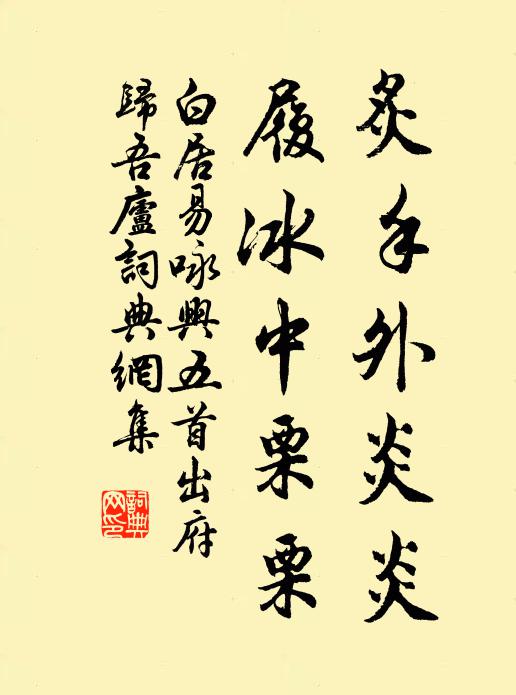 炙手外炎炎
履冰中栗栗
白居易咏興五首出府
歸吾廬詞典網集
詞典
网印